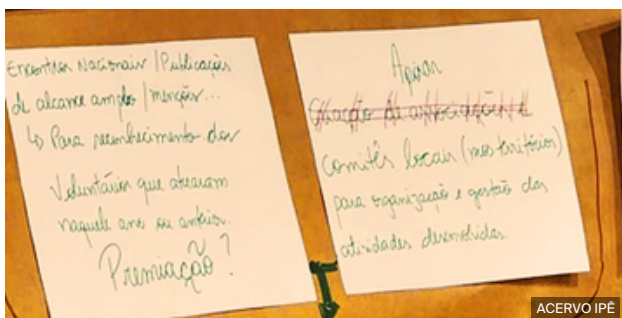 Encontros Nacionais / Publicações
de alcance amplo / menções...
↳ Para reconhecimento dos
Voluntários que atuaram
naquele ano ou anterior.
Premiação?
Apoiar
criação de associações e
comitês locais (nos territórios)
para organização e gestão das
atividades desenvolvidas.
ACERVO IPÊ